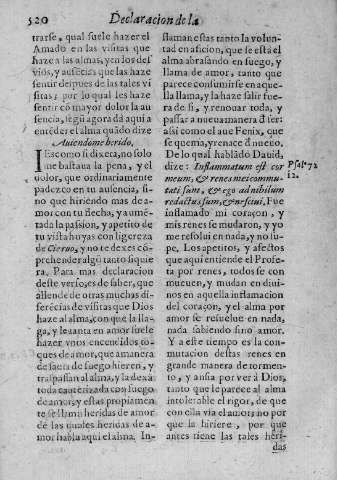 520 Declaracion de la
trarse, qual suele hazer el
Amado en las visitas que
haze a las almas, y en los des
vios, y ausencias que las haze
sentir despues de las tales vi
sitas; por lo qual les haze
sentir cõ mayor dolor la au
sencia, segũ agora dà aquí a
entẽder el alma quãdo dize
Auiendome herido.
I Es como si dixera, no solo
me bastaua la pena, y el
dolor, que ordinariamente
padezco en tu ausencia, si-
no que hiriendo mas de a-
mor con tu flecha, y aumẽ-
tada la passion, y apetito de
tu vista huyas con ligereza
de Cieruo, y no te dexes cõ-
prehender algũ tanto siquie
ra. Para mas declaracion
deste verso, es de saber, que
allende de otras muchas di-
ferẽcias de visitas que Dios
haze al alma, con que la lla-
ga, y leuanta en amor suele
hazer vnos encendidos to-
ques de amor, que a manera
de saeta de fuego hieren, y
traspassan al alma, y la dexã
toda cauterizada con fuego
de amor, y estas propiamen
te se llamã heridas de amor
de las quales heridas de a-
mor habla aqui el alma. In-
flaman estas tanto la volun-
tad en aficion, que se està el
alma abrasando en fuego, y
llama de amor, tanto que
parece consumirse en aque-
lla llama, y la haze salir fue-
ra de si, y renouar toda, y
passar a nueua manera d̃ ser:
assi como el aue Fenix, que
se quema, y renace d̃ nueuo.
De lo qual hablãdo Dauid,
dize: Inflammatum est cor Psal. 72
meum, & renes mei commu- 12.
tati sunt, & ego ad nihilum
redactus sum, & nesciui. Fue
inflamado mi coraçon, y
mis renes se mudaron, y yo
me resolui en nada, y no su-
pe. Los apetitos, y afectos
que aqui entiende el Profe-
ta por renes, todos se con
mueuen, y mudan en diui-
nos en aquella inflamacion
del coraçon, y el alma por
amor se resuelue en nada,
nada sabiendo sino amor.
Y a este tiempo es la con-
mutacion destas renes en
grande manera de tormen-
to, y ansia por ver à Dios,
tanto que le parece al alma
intolerable el rigor, de que
con ella vsa el amor: no por
que la hiriere, por que
antes tiene las tales heri-
das